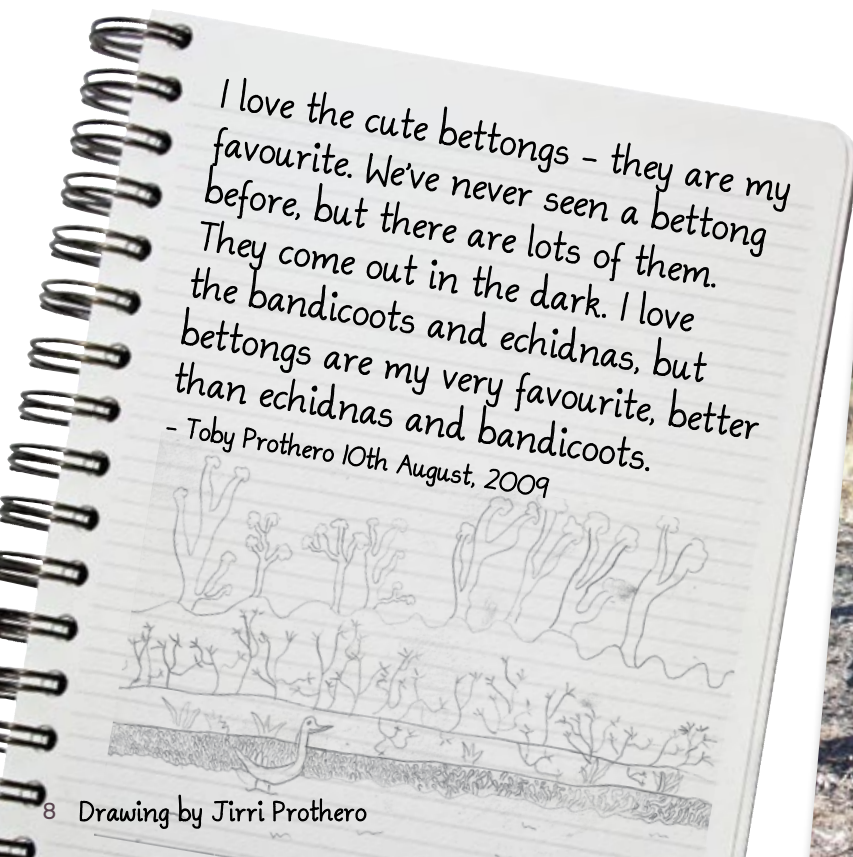 I love the cute bettongs – they are my
favourite. We've never seen a bettong
before, but there are lots of them.
They come out in the dark. I love
the bandicoots and echidnas, but
bettongs are my very favourite, better
than echidnas and bandicoots.
– Toby Prothero 10th August, 2009
8 Drawing by Jirri Prothero